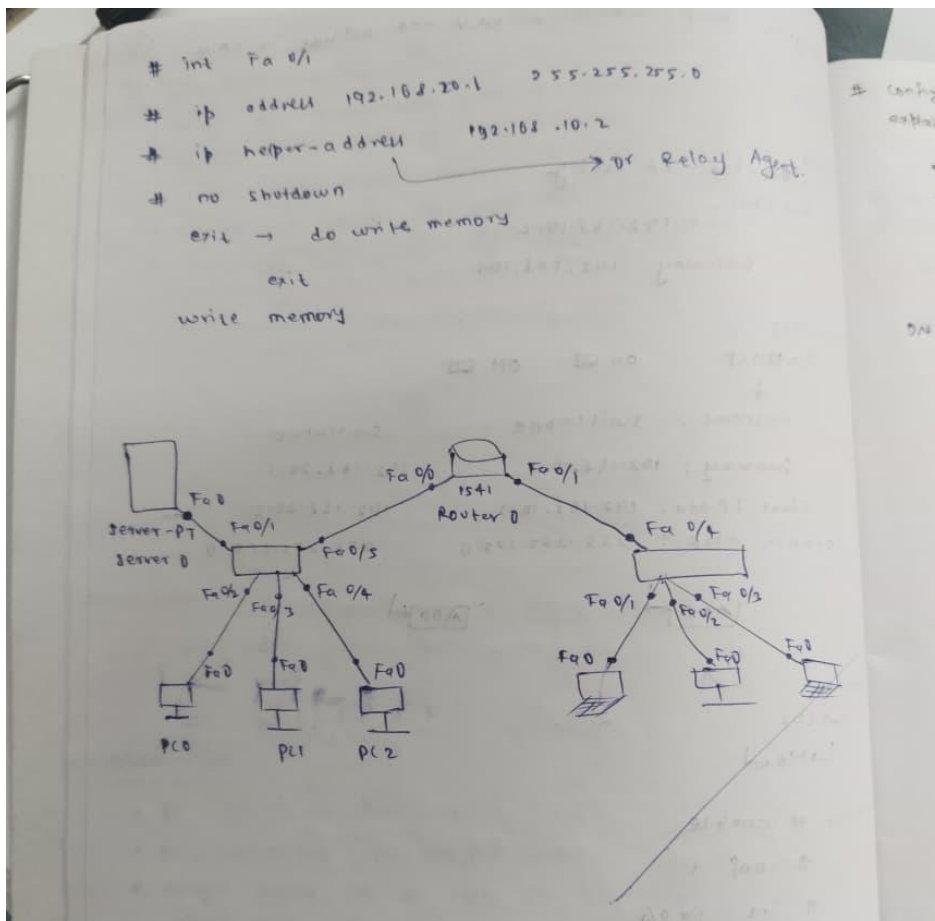 # int Fa 0/1
# ip address 192.168.20.1 255.255.255.0
# ip helper-address 192.168.10.2
→ or Relay Agent.
# no shutdown
exit → do write memory
exit
write memory
Fa 0/0 Fa 0/1
1541
Router 0
Fa0
Server-PT
Server 0
Fa0/1
Fa0/5
Fa 0/4
Fa0/2 Fa0/3 Fa 0/4
Fa 0/1 Fa 0/2 Fa 0/3
Fa0 Fa0 Fa0 Fa0 Fa0 Fa0
PC0 PC1 PC2